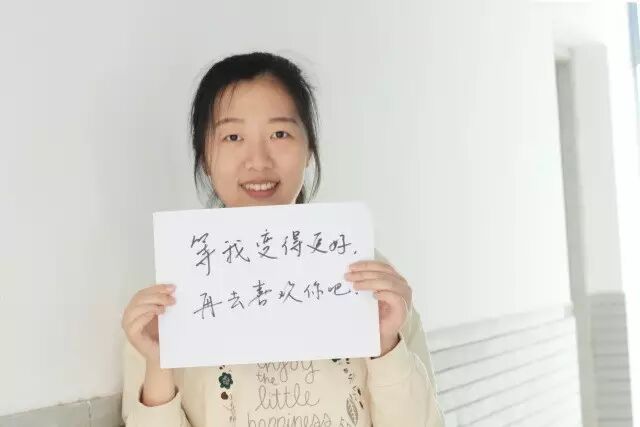 等我变得更好.
再去喜欢你吧.
enjoy
the
little
happiness